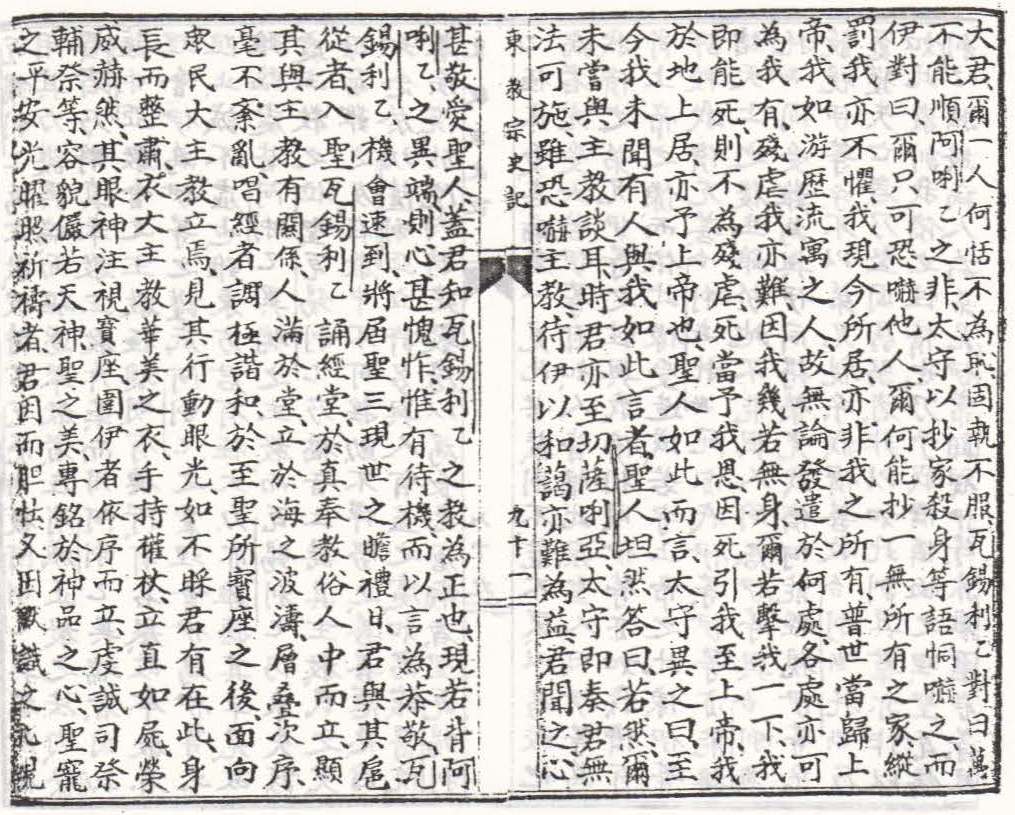 大君、爾一人何恬不為恥、固執不服、瓦錫利乙對曰、萬
不能順阿唎乙之非、太守以抄家殺身等語恫嚇之、而
伊對曰、爾只可恐嚇他人、爾何能抄一無所有之家、縱
罰我亦不懼、我現今所居、亦非我之所有、普世當歸上
帝、我如游歷流寓之人、故無論發遣於何處、各處亦可
為我有、殘虐我亦難、因我幾若無身、爾若擊我一下、我
即能死、則不為殘虐、死當予我恩、因死引我至上帝、我
於地上居、亦予上帝也、聖人如此而言、太守異之曰、至
今我未聞有人與我如此言者、聖人坦然答曰、若然、爾
未嘗與主教談耳、時君亦至切薩唎亞、太守即奏君、無
法可施、雖恐嚇主教、待伊以和藹、亦難為益、君聞之、心
東教宗史記
九十一
甚敬愛聖人、蓋君知瓦錫利乙之教為正也、現若背阿
唎乙之異端、則心甚愧怍、惟有待機而以言為恭敬、瓦
錫利乙、機會速到、將屆聖三現世之瞻禮日、君與其扈
從者、入聖瓦錫利乙誦經堂、於真奉教俗人中而立、顯
其與主教有關係、人滿於堂、立於海之波濤、層叠次序、
毫不紊亂、唱經者調極諧和、於至聖所寶座之後、面向
眾民大主教立焉、見其行動眼光、如不睬君有在此、身
長而整肅、衣大主教華美之衣、手持權杖、立直如屍、榮
威赫然、其眼神注視寶座、圍伊者依序而立、虔誠司祭
輔祭等、容貌儼若天神聖之美專銘於神品之心、聖寵
之平安光曜照祈禱者、君因而胆怯又因